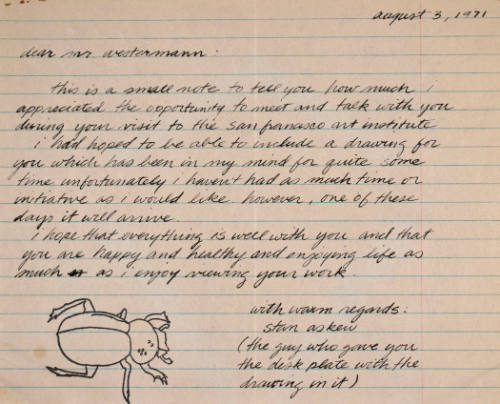 august 3, 1971
dear mr westermann:
this is a small note to tell you how much i
appreciated the opportunity to meet and talk with you
during your visit to the san francisco art institute
i had hoped to be able to include a drawing for
you which has been in my mind for quite some
time unfortunately i haven't had as much time or
initiative as i would like. however, one of these
days it will arrive.
i hope that everything is well with you and that
you are happy and healthy and enjoying life as
much as i enjoy viewing your work.
with warm regards:
stan askew
(the guy who gave you
the desk plate with the
drawing in it)